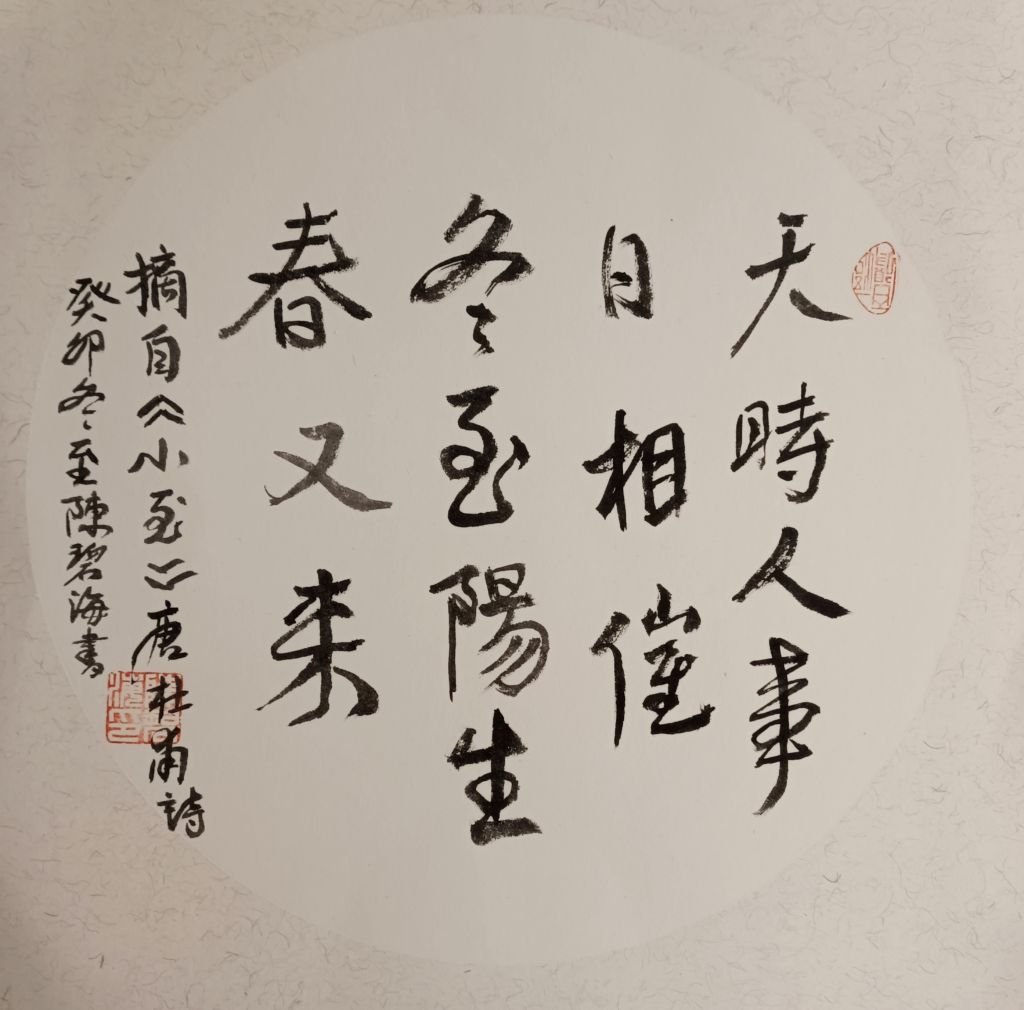 天時人事
日相催
冬至陽生
春又来
摘自《小至》唐杜甫詩
癸卯冬至陳碧海書